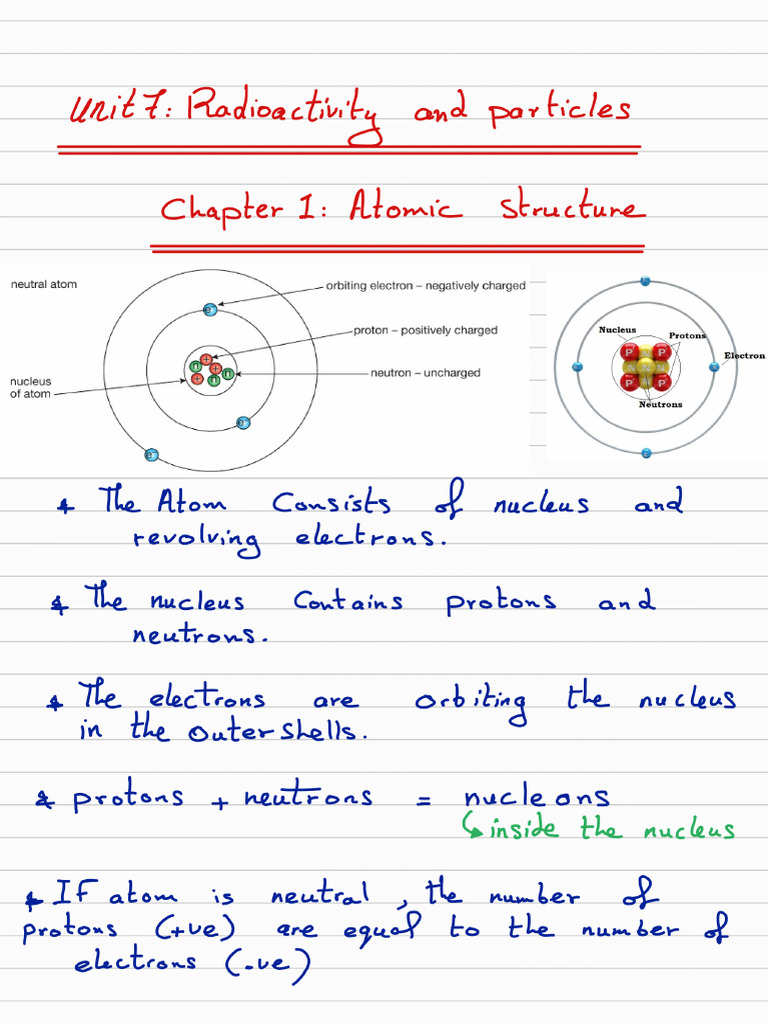 Unit 7: Radioactivity and particles
Chapter 1: Atomic structure
neutral atom
orbiting electron – negatively charged
proton – positively charged
neutron – uncharged
nucleus
of atom
e⁻
e⁻
e⁻
+
+
+
n
n
n
Nucleus
Protons
Electron
Neutrons
P
P
P
P
N
N
N
N
N
* The Atom Consists of nucleus and
revolving electrons.
* The nucleus Contains protons and
neutrons.
* The electrons are orbiting the nucleus
in the outer shells.
* protons + neutrons = nucleons
↳ inside the nucleus
* If atom is neutral, the number of
protons (+ve) are equal to the number of
electrons (-ve)